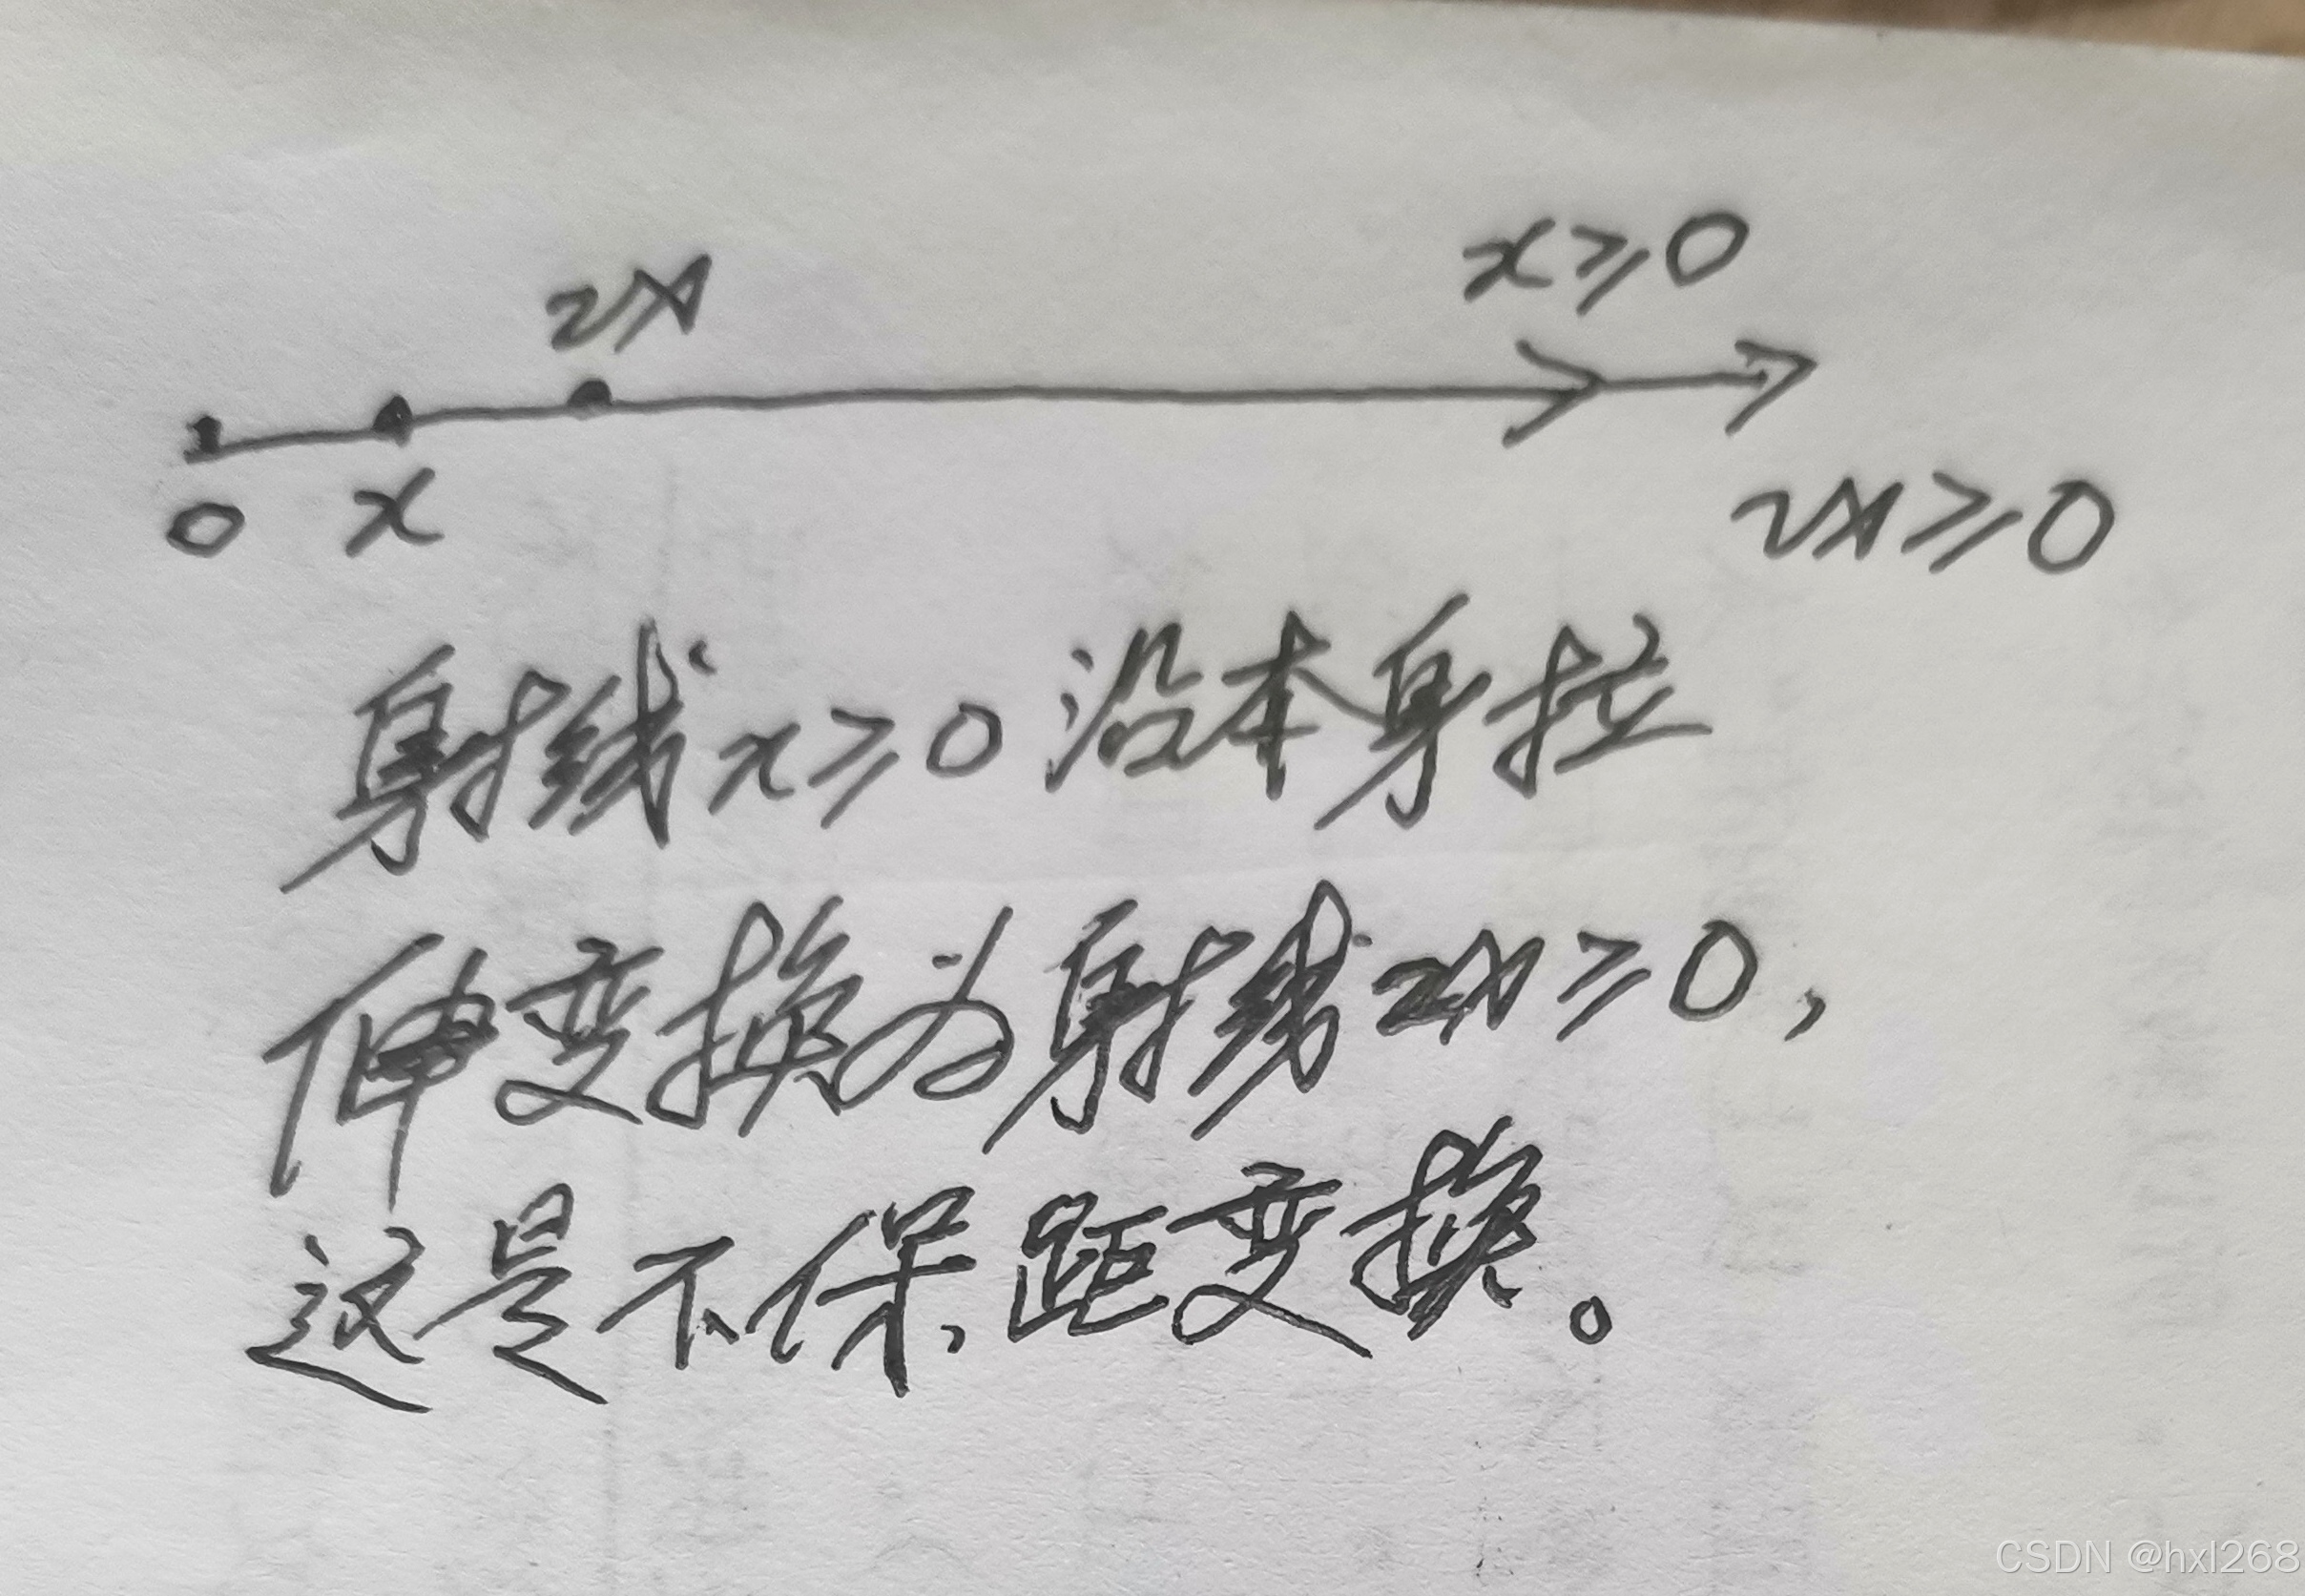 x≥0
2x
0 x
2x≥0
射线x≥0沿本身拉
伸变换为射线2x≥0,
这是不保距变换。
CSDN @hxl268